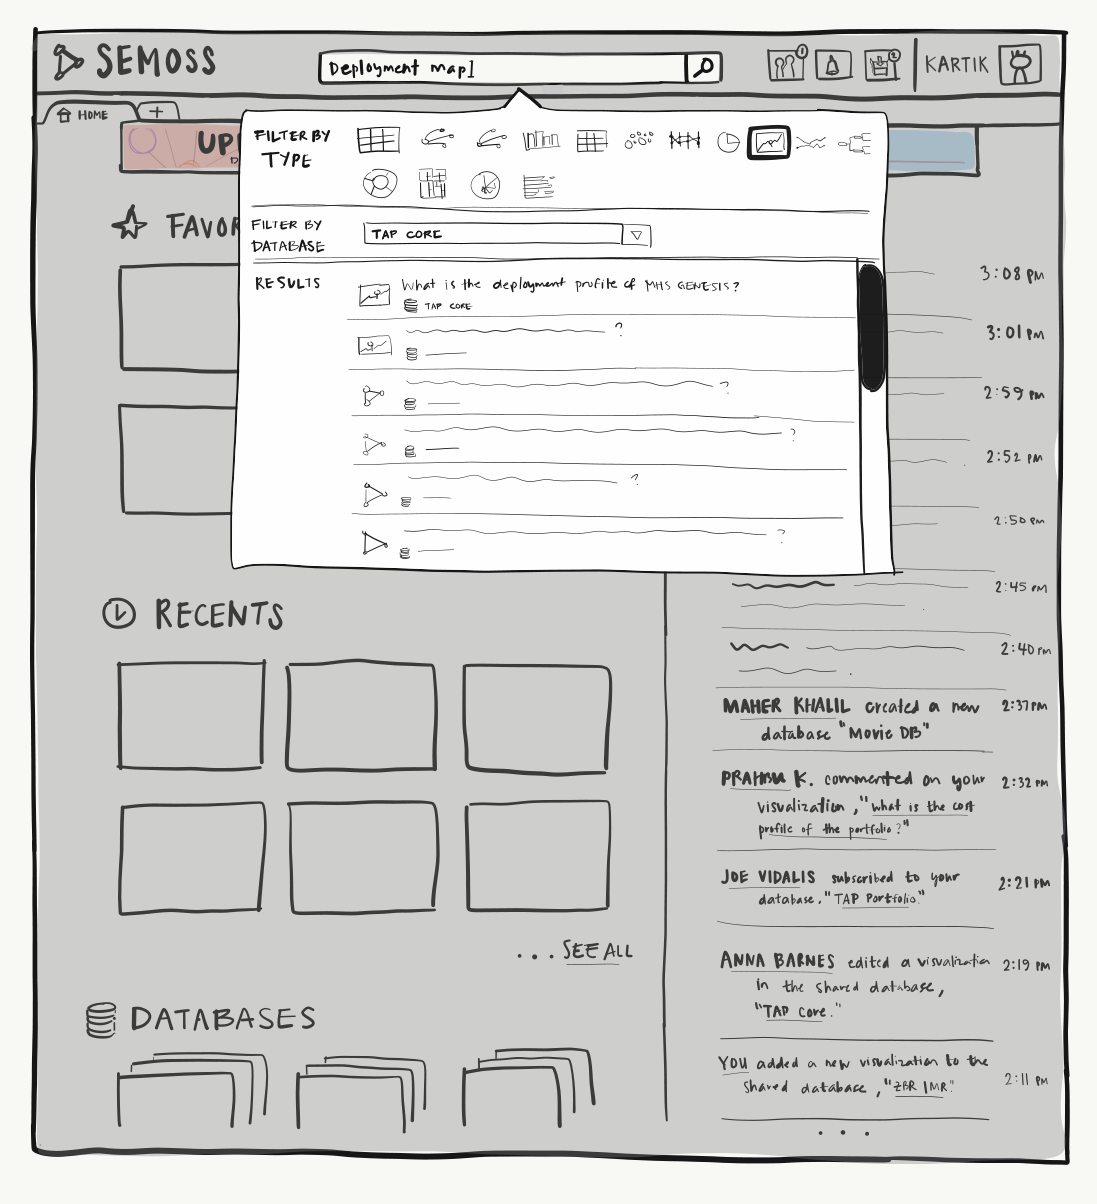 SEMOSS
Deployment map]
1
2
KARTIK
HOME
+
UP
FILTER BY
TYPE
FAVOR
FILTER BY
DATABASE
TAP CORE
RESULTS
What is the deployment profile of MHS GENESIS?
TAP CORE
?
?
?
?
?
3:08 PM
3:01 PM
2:59 PM
2:52 PM
2:50 PM
2:45 PM
2:40 PM
RECENTS
...SEE ALL
DATABASES
MAHER KHALIL created a new 2:37PM
database "Movie DB"
K. commented on your 2:32 PM
visualization, "what is the cost
profile of the portfolio?"
JOE VIDALIS subscribed to your 2:21 PM
database, "TAP Portfolio."
ANNA BARNES edited a visualization 2:19 PM
in the shared database,
"TAP Core."
YOU added a new visualization to the 2:11 PM
shared database, "
...